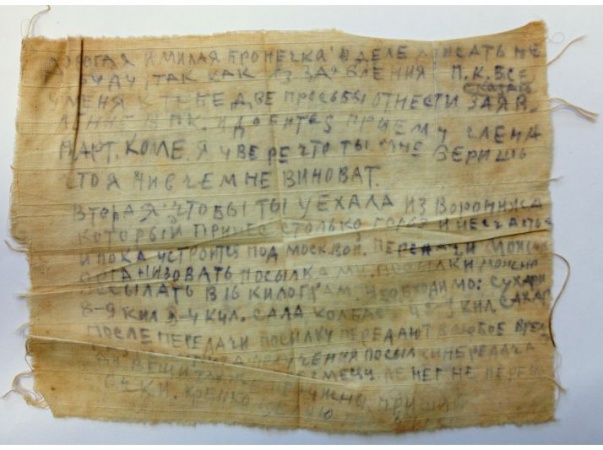 ДОРОГАЯ И МИЛАЯ БРОНЕЧКА О ДЕЛЕ ПИСАТЬ НЕ
БУДУ ТАК КАК ИЗ ЗАЯВЛЕНИЯ П.К. ВСЕ
У МЕНЯ К ТЕБЕ ДВЕ ПРОСЬБЫ ОТНЕСТИ ЗАЯВ
ЛЕНИЕ В ПК. И ДОБИТСЯ ПРИЕМ У ЧЛЕНА
ПАРТ. КОЛЛЕ. Я УВЕРЕ ЧТО ТЫ МНЕ ВЕРИШЬ
ТО Я НИ С ЧЕМ НЕ ВИНОВАТ.
ВТОРАЯ ЧТОБЫ ТЫ УЕХАЛА ИЗ ВОРОНИЖА
КОТОРЫЙ ПРИНЕС СТОЛЬКО ГОРЯ И НЕСЧАСТЬЯ
И ПОКА УСТРОИТСЯ ПОД МОСКВОЙ. ПЕРЕДАЧИ МОЖНО
ОРГАНИЗОВАТЬ ПОСЫЛКАМИ. ПОСЫЛКИ МОЖНО
ВЫСЫЛАТЬ В 16 КИЛОГРАМ НЕОБХОДИМО: СУХАРИ
8-9 КИЛ 3-4 КИЛ. САЛА КОЛБАС КИЛ. САХАР
ПОСЛЕ ПЕРЕДАЧИ ПОСЫЛКУ ПЕРЕДАЮТ В ЛЮБОЕ ВРЕМ
ПОЛУЧЕНИЯ ПОСЫЛКИ ПЕРЕДАЧА
ВЕЩИ МЕСЯЦ ДЕНЕГ НЕ
КРЕПКО